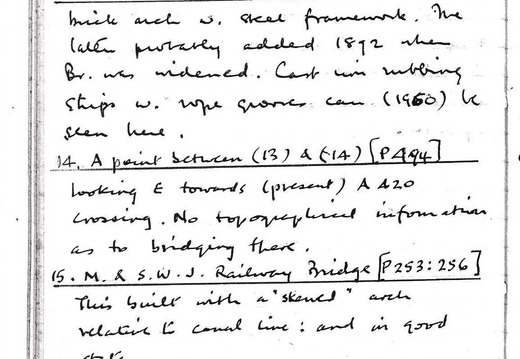 brick arch w. steel framework. The
latter probably added 1892 when
Br. was widened. Cast iron rubbing
strips w. rope grooves can (1960) be
seen here.
14. A point between (13) & (14) [P494]
looking E towards (present) A 420
crossing. No topographical information
as to bridging there.
15. M. & S. W. J. Railway Bridge [P253:256]
This built with a "skewed" arch
relative to canal line: and in good